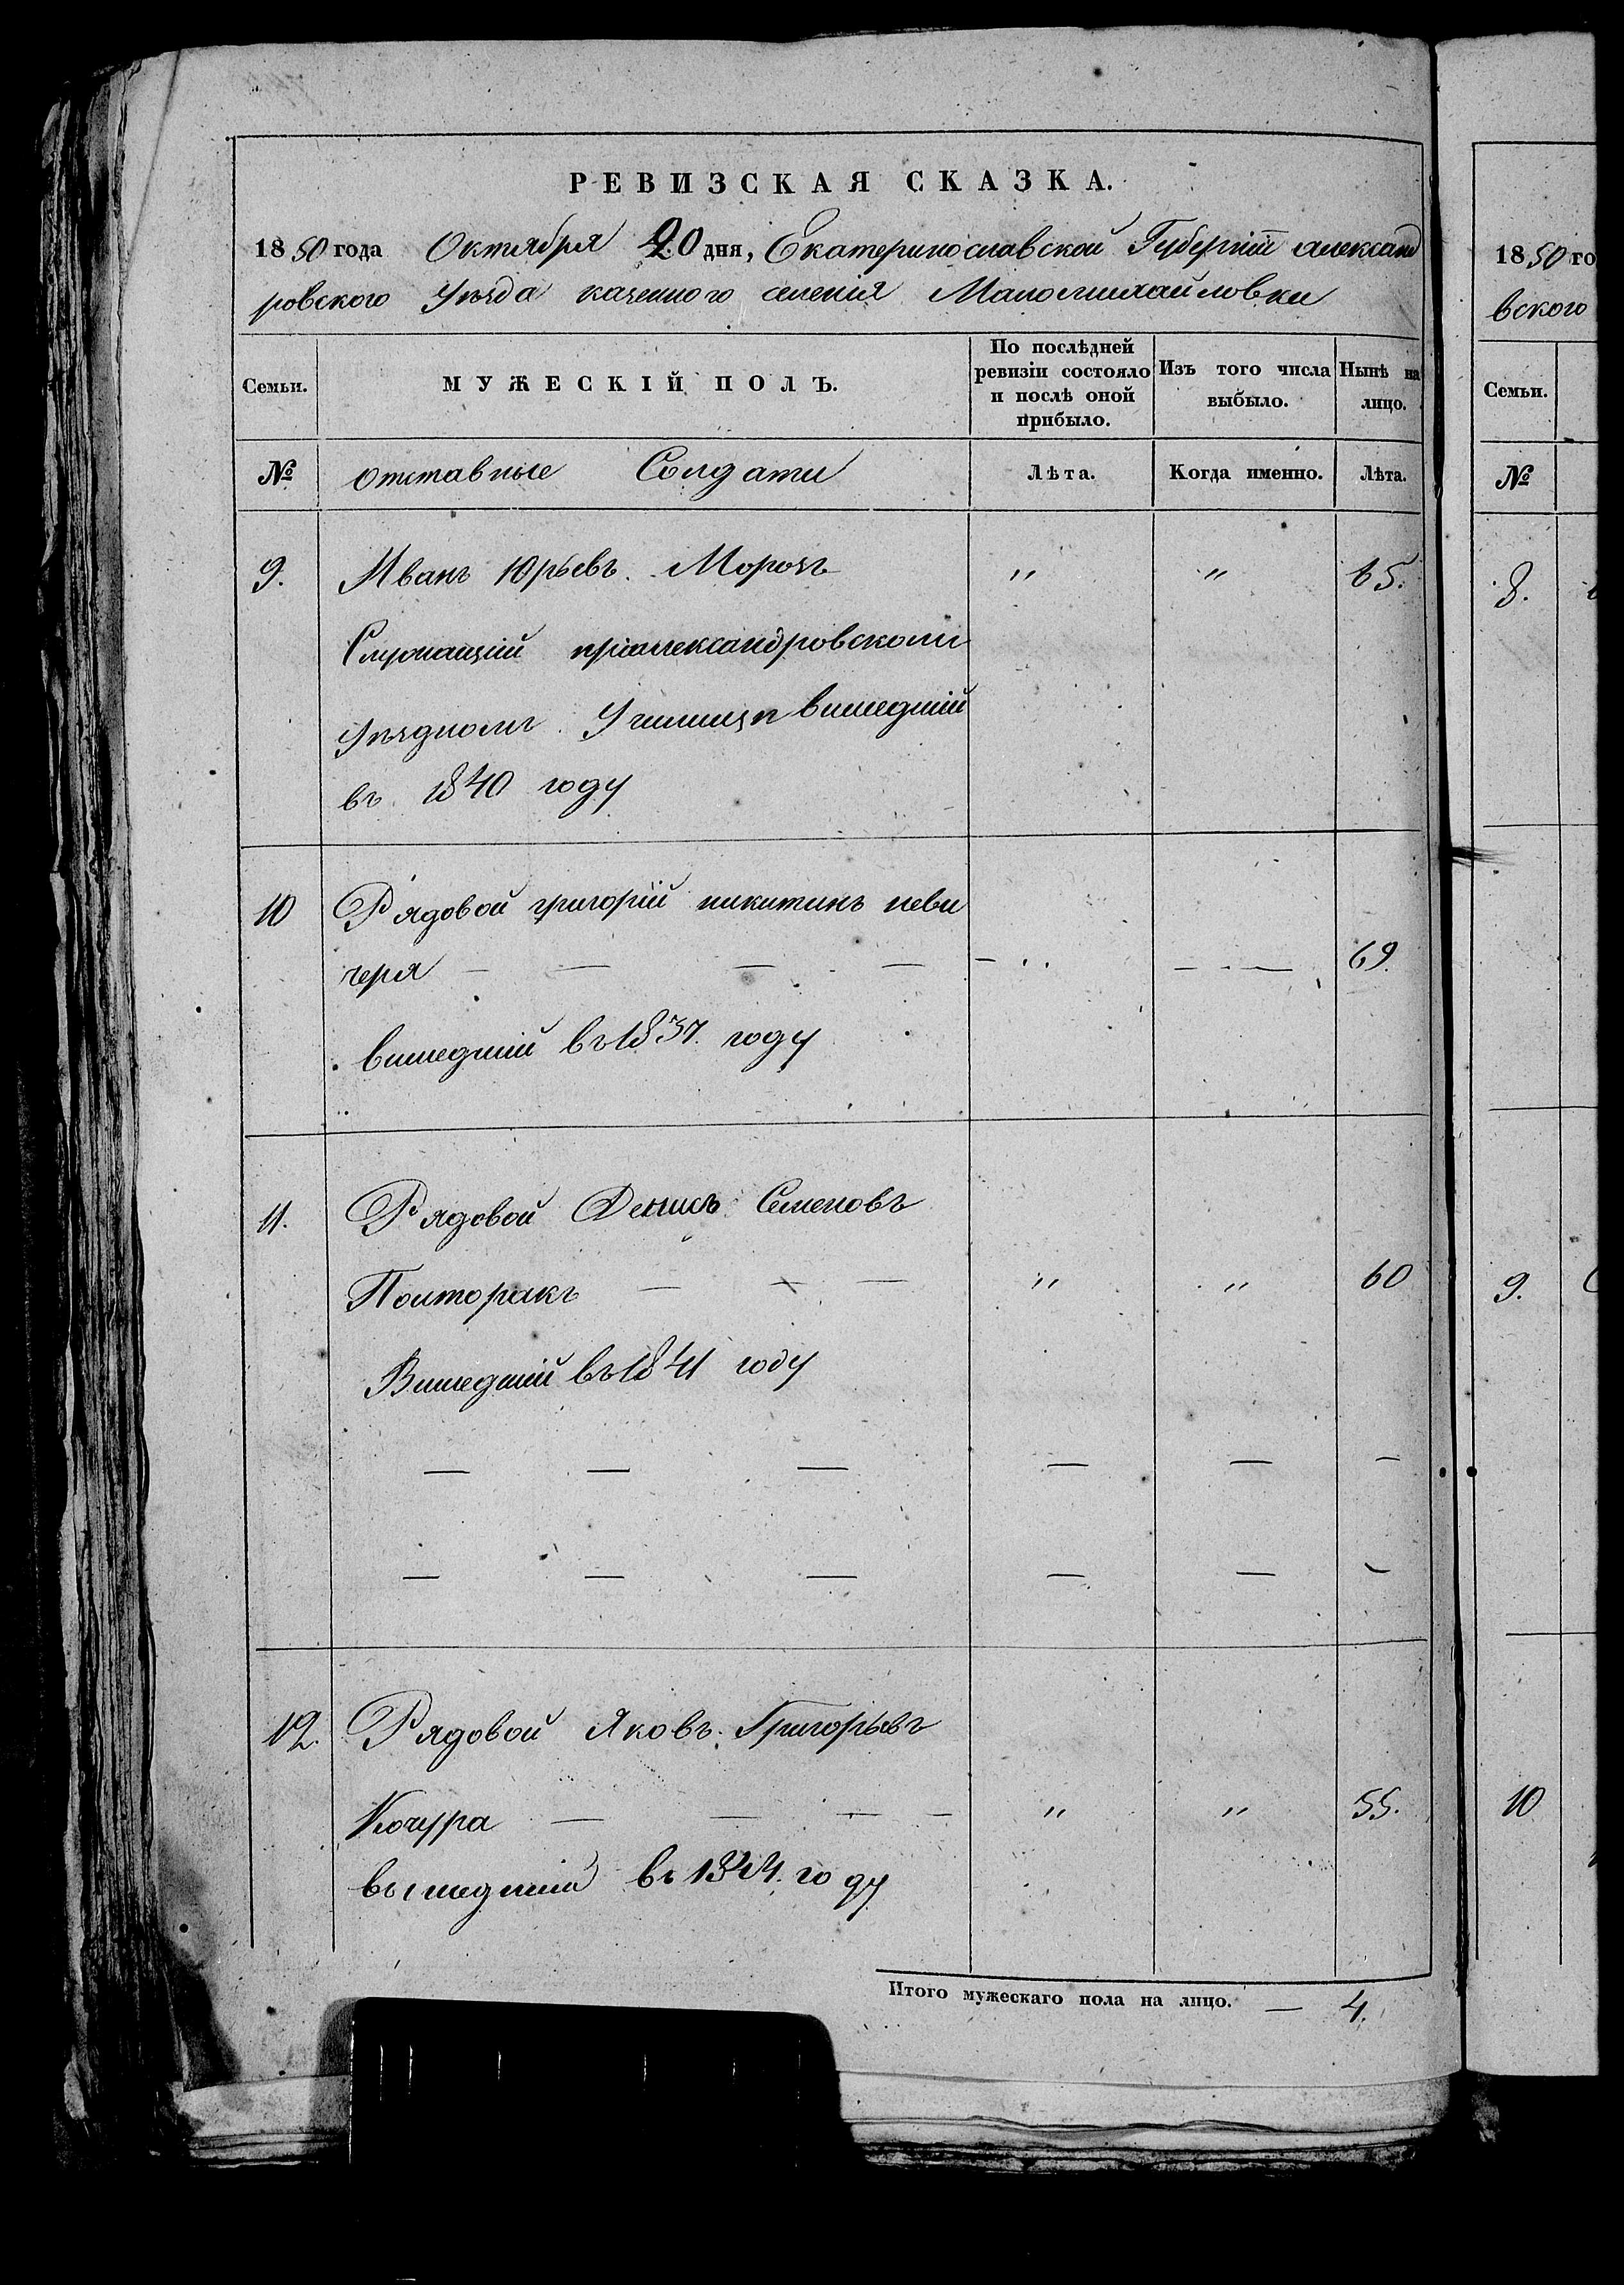 РЕВИЗСКАЯ СКАЗКА.
1850 года Октября 20 дня, Екатеринославской Губерніи александ
ровского Уѣзда казенного селенія Маломихайловки
Семьи.
МУЖЕСКІЙ ПОЛЪ.
По послѣдней ревизіи состояло и послѣ оной прибыло.
Изъ того числа выбыло.
Нынѣ на лицо.
№ отставные Солдати Лѣта. Когда именно. Лѣта.
9. Иванъ Юрьевъ Морозъ " " 65.
Служащій приалександровскомъ
Уѣздномъ Училищѣ вишедшій
въ 1840 году
10 Рядовой григорій никитинъ неви
черя — — — — — .. — . — 69.
вишедшій въ 1837. году
11. Рядовой Денисъ Семеновъ
Полторакъ — — — " " 60
Вишедшій въ 1841 году
— — — — — —
— — — — — —
12. Рядовой Яковъ Григорьевъ
Кочура — — — — " " 55.
вышедшій въ 1844. году
Итого мужескаго пола на лицо. — 4.
1850 го
вского
Семьи.
№
8.
9.
10